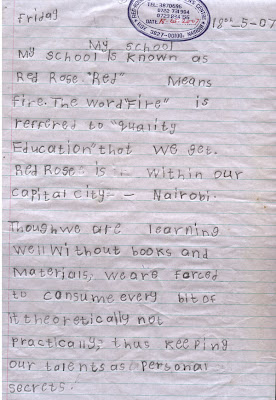 Friday
18th-5-07
My School
My school is known as
Red Rose. "Red" Means
Fire. The Word "Fire" is
reffered to "quality
Education" that we get.
Red Rose is :- Within our
Capital City - - Nairobi.
Though we are learning
well Without books and
Materials, we are forced
to consume every bit of
it theoretically not
Practically, thus keeping
our talents as personal
secrets.